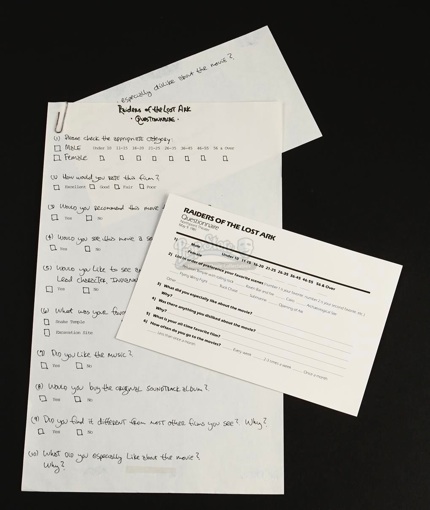 especially dislike about the movie?
Raiders of the Lost Ark
· Questionnaire ·
(1) Please check the appropriate category:
Male Under 10 11-15 16-20 21-25 26-35 36-45 46-55 56 & Over
Female
(2) How would you rate this film?
Excellent Good Fair Poor
(3) Would you recommend this movie
Yes No
(4) Would you see this movie a se
Yes No
(5) Would you like to see
Lead character,
Yes No
(6) What was your favo
Snake Temple
Excavation Site
(7) Did you like the music?
Yes No
(8) Would you buy the original soundtrack album?
Yes No
(9) Did you find it different from most other films you see? Why?
Yes No
(10) What did you especially like about the movie?
Why?
RAIDERS OF THE LOST ARK
Questionnaire
1) Male Under 10 11-15 16-20 21-25 26-35 36-45 46-55 56 & Over
Female
2) List in order of preference your favorite scenes
Other
3) What did you especially like about the movie?
Why?
4) Was there anything you disliked about the movie?
Why?
5) What is your all-time favorite film?
6) How often do you go to the movies?
Less than once a month Every week 2-3 times a week Once a month